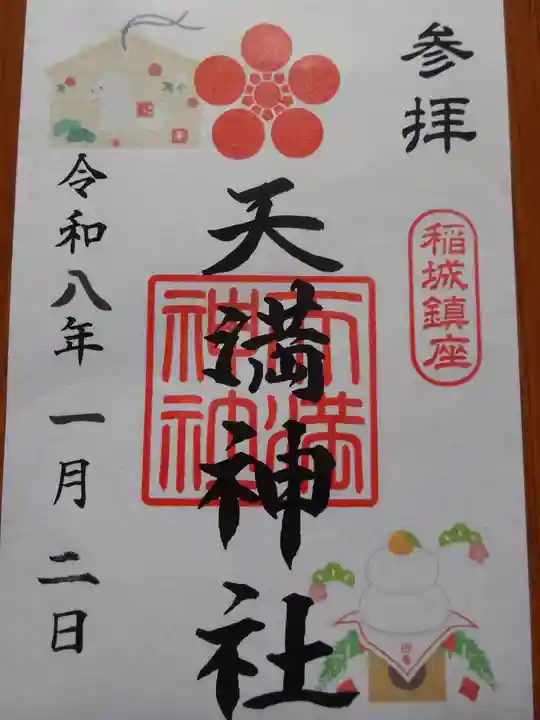 参拝
稲城鎮座
天満神社
天満
神社
令和八年 一月 二日